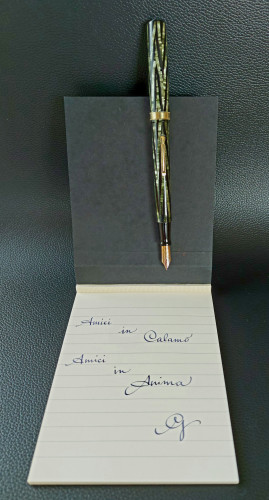 Amici
in
Calamo
Amici
in
Anima